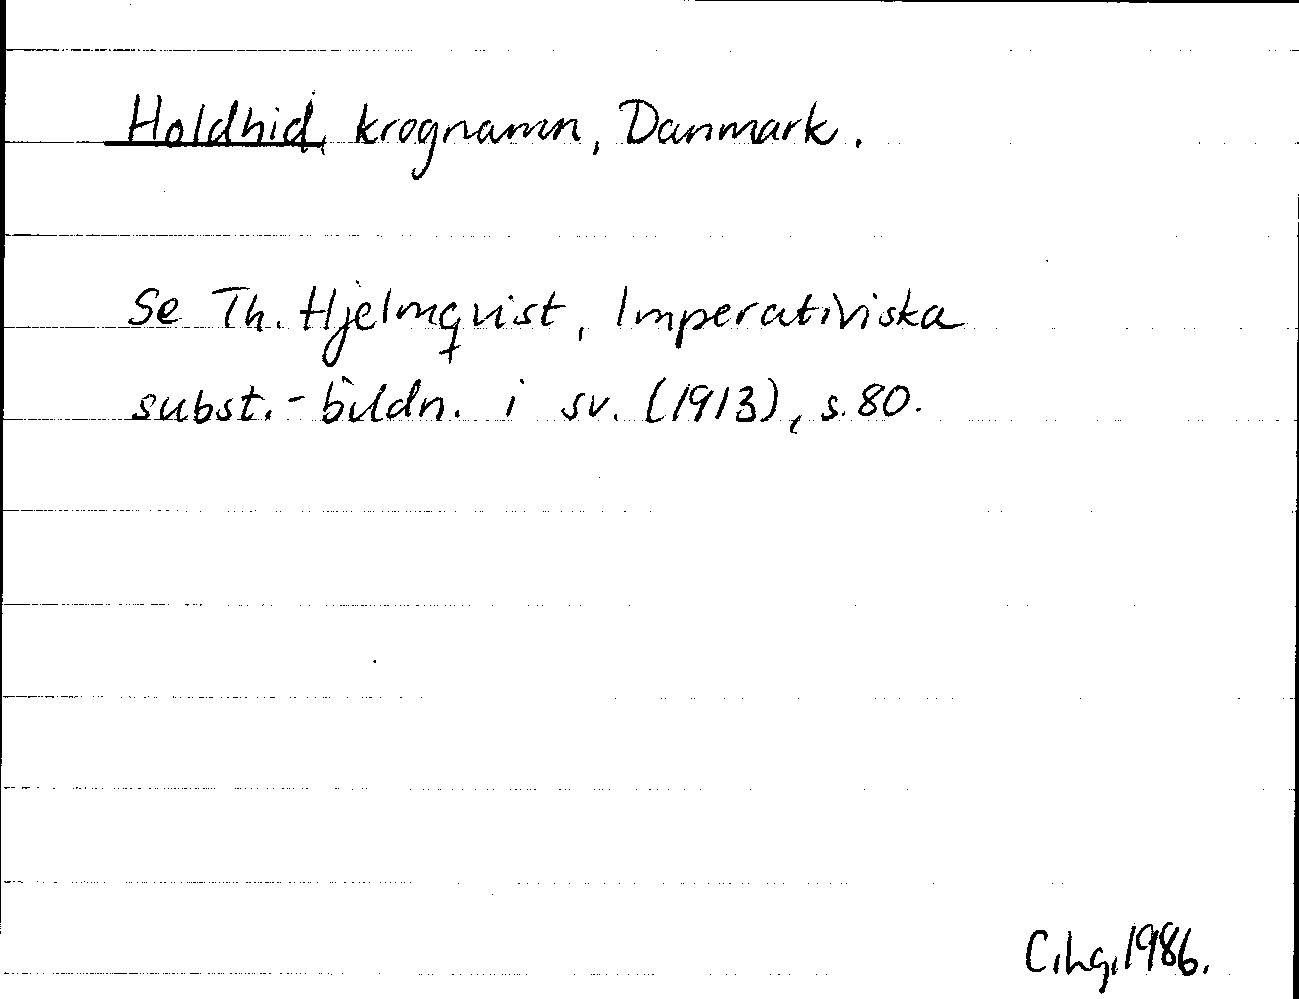 Holdhid, krognamn, Danmark.
Se Th. Hjelmqvist, Imperativiska
subst.-bildn. i sv. (1913), s. 80.
C.hg, 1986.